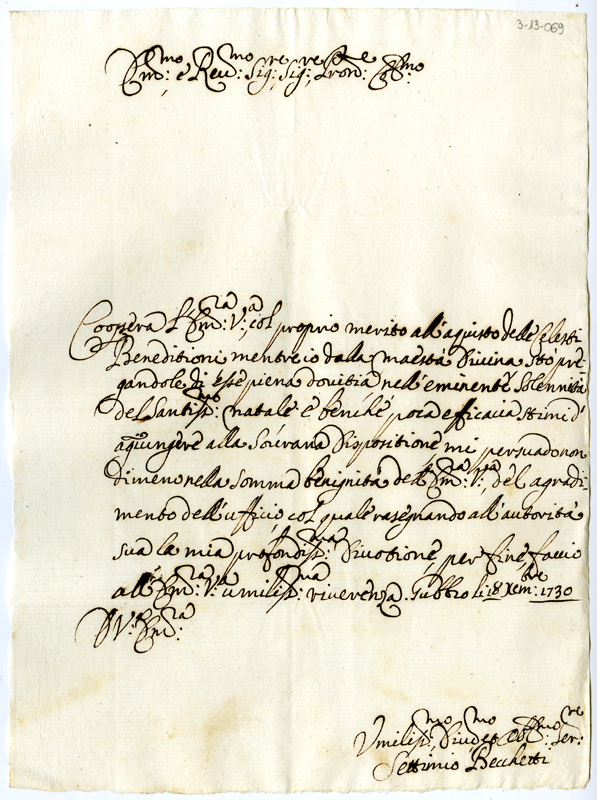 3-13-069
Em:mo e Reu:mo Sig:re Sig:re Pron:e Col:mo
Coopera l'Em:za V:a, col proprio merito all'aquisto delle Celesti
Beneditioni mentre io dalla Maestà Diuina stò pre=
gandole di esse piena douitia nell'eminente Solennità
del Santiss:mo Natale e benche poca efficacia stimi d'
aggiungere alla Sourana Dispositione mi persuado non
dimeno nella somma benignità dell'Em:za V:ra, del agradi
mento dell'uffitio, col quale rasegnando all'autorità
sua la mia profondiss:ma Diuotione, per fine faccio
all'Em:za V:ra umiliss:ma riuerenza. Gubbio li 18 Xem:bre 1730
D V: Em:za
Vmiliss:mo Diuot:mo Obl:mo Ser:re
Settimio Bechetti